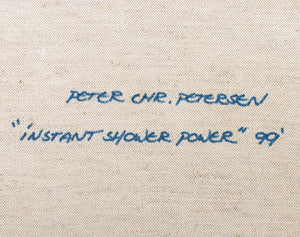 PETER CHR. PETERSEN
"INSTANT SHOWER POWER" 99'